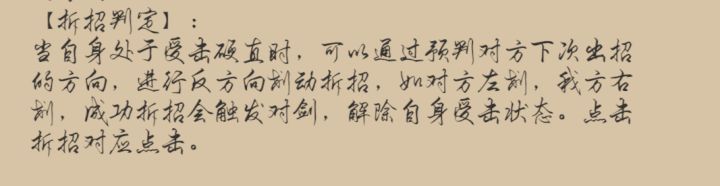 【拆招判定】：
当自身处于受击硬直时，可以通过预判对方下次出招
的方向，进行反方向划动拆招，如对方左划，我方右
划，成功拆招会触发对剑，解除自身受击状态。点击
拆招对应点击。